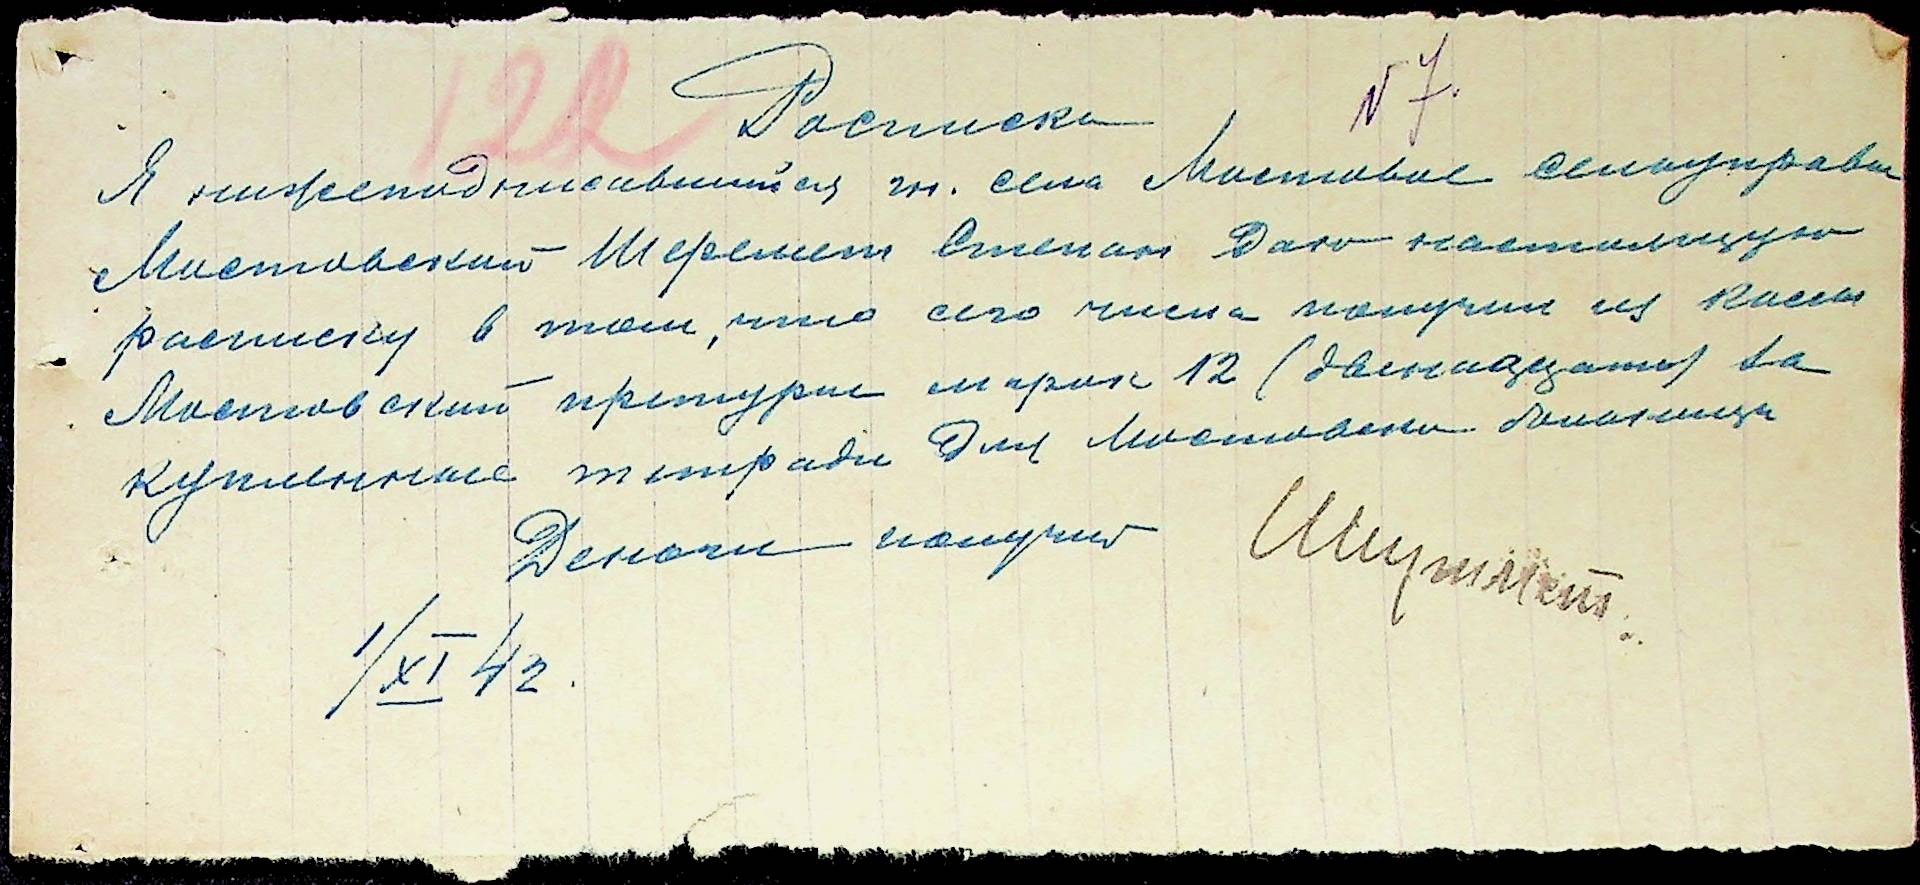 122
Расписка
N 7.
Я нижеподписавшийся жи. села Мостовое селоуправы
Мостовский Шеремет Степан даю настоящую
расписку в том, что сего числа получил из кассы
Мостовский претуры марок 12 (двенадцать) за
купленные тетради для Мостовско больницы
Деньги получив
1/XI 42.